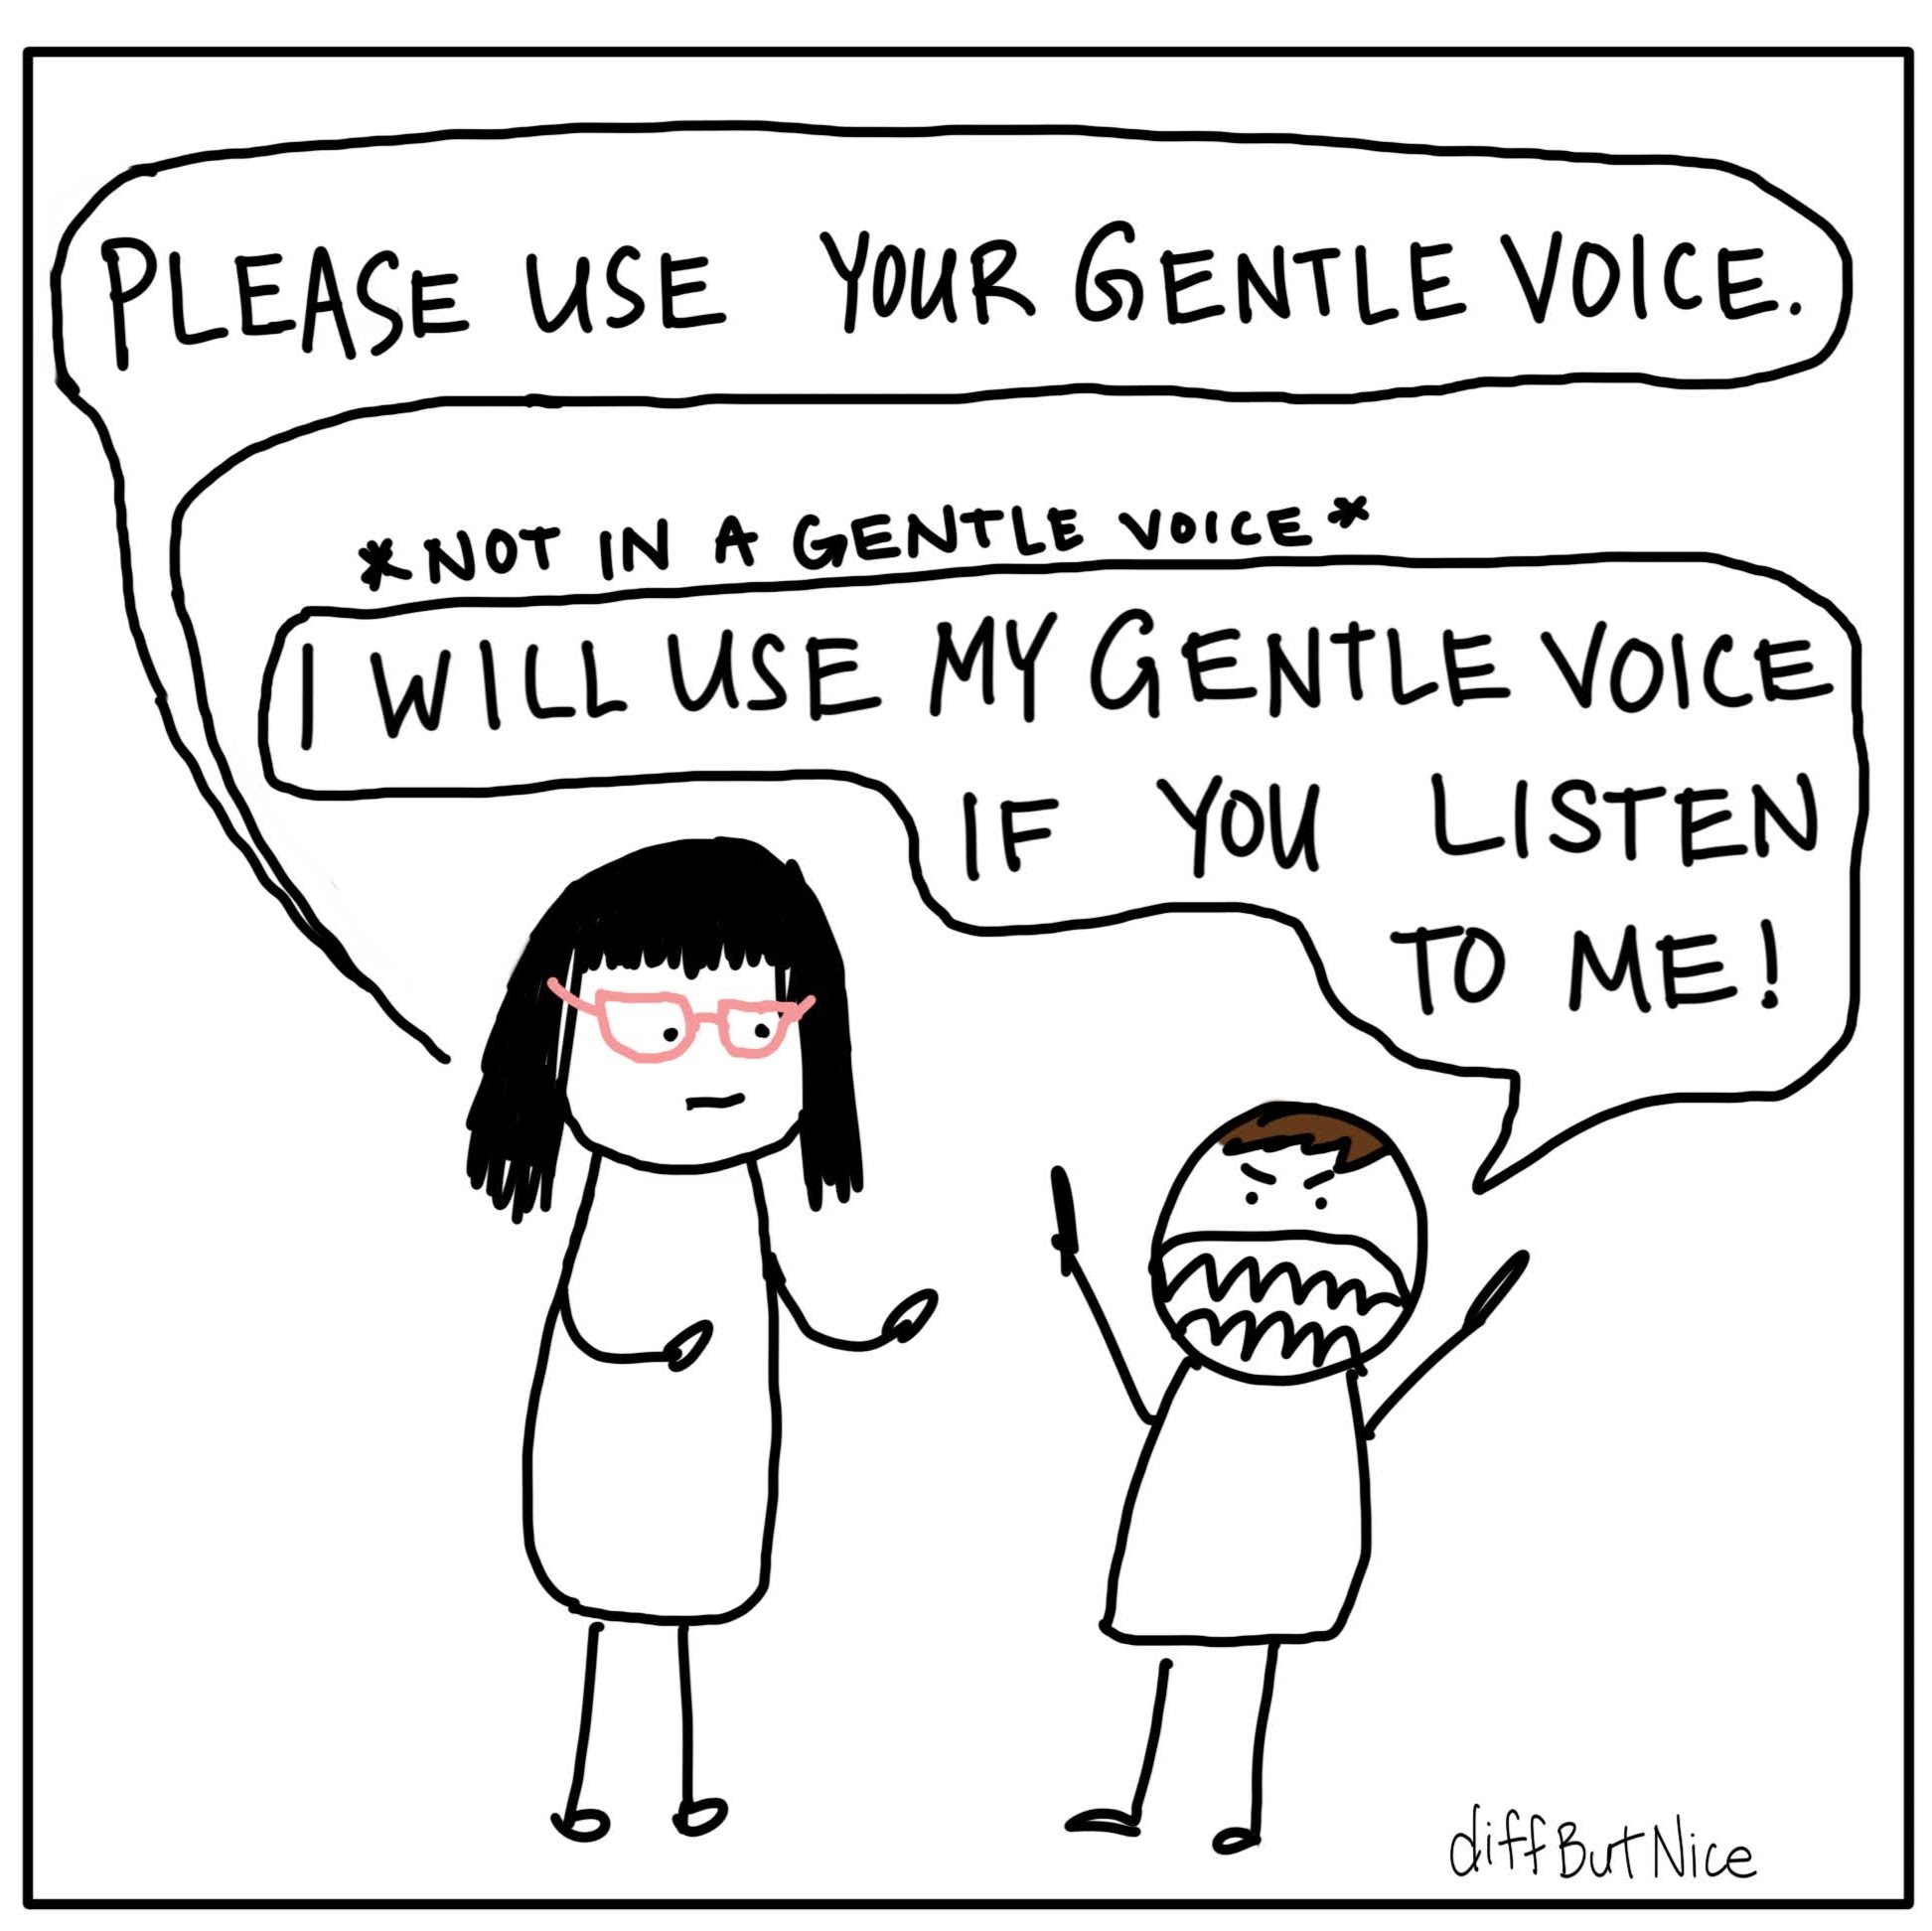 PLEASE USE YOUR GENTLE VOICE.
*NOT IN A GENTLE VOICE*
I WILL USE MY GENTLE VOICE
IF YOU LISTEN
TO ME!
diffButNice